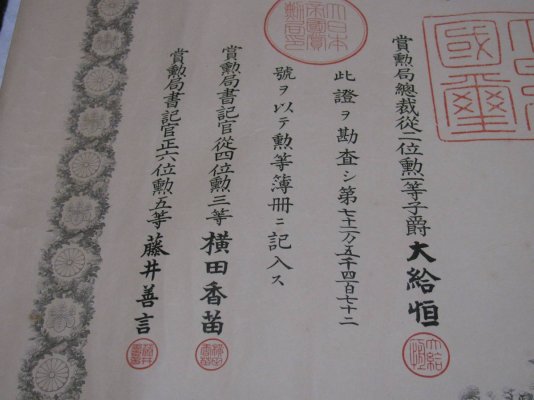 賞勲局總裁從二位勲一等子爵大給恒
此證ヲ勘査シ第七十二万五千四百七十二
號ヲ以テ勲等簿冊ニ記入ス
賞勲局書記官從四位勲三等横田香苗
賞勲局書記官正六位勲五等藤井善言
國璽